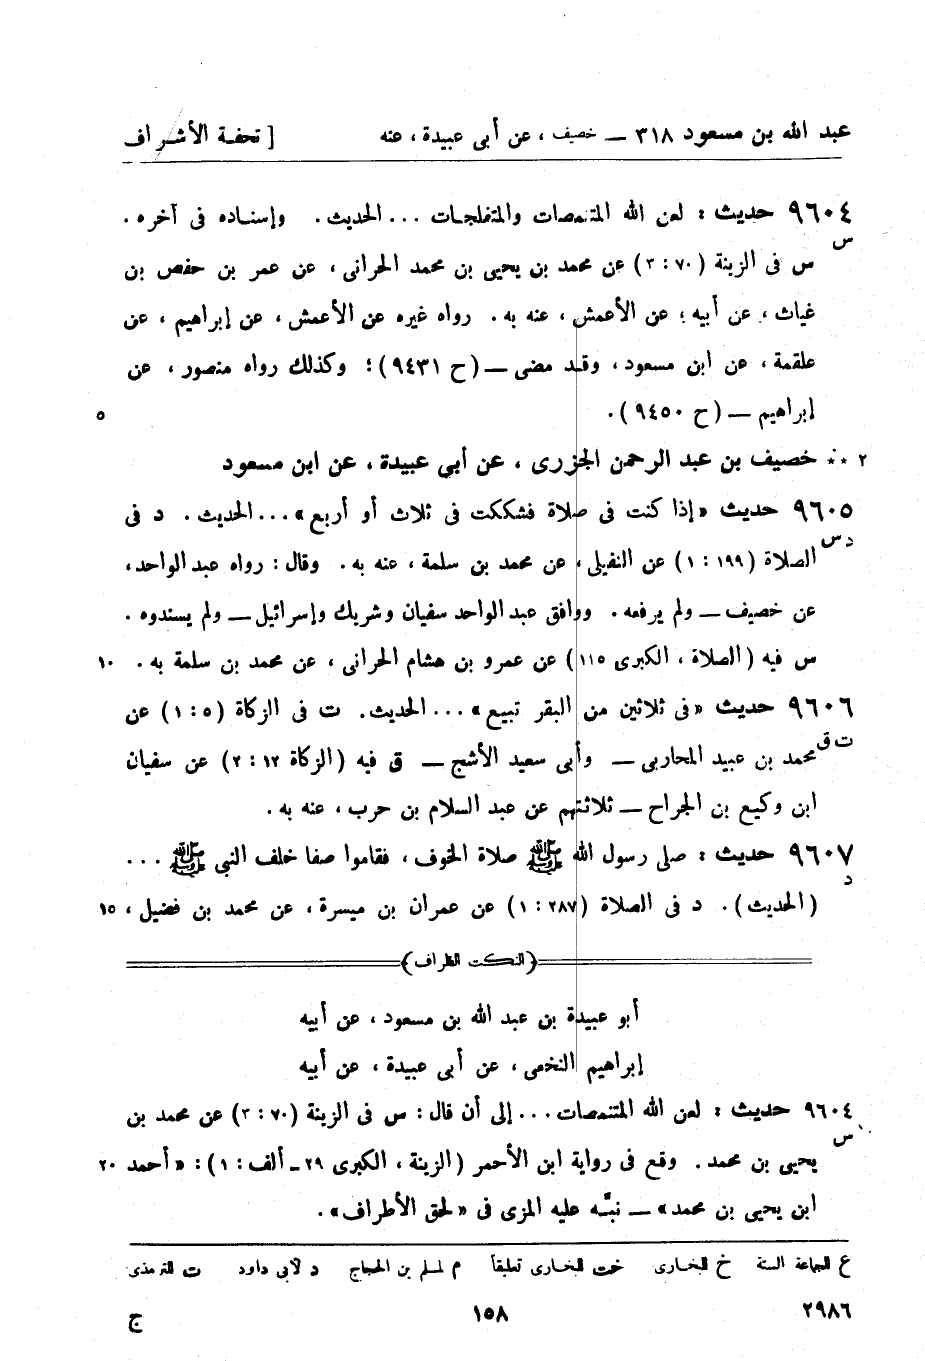 عبد الله بن مسعود ٣١٨ ــ خصيف ، عن أبى عبيدة ، عنه [ تحفة الأشراف
٩٦٠٤ حديث : لعن الله المتنمصات والمتفلجات ... الحديث . وإسناده فى آخره .
س
س فى الزينة ( ٧٠ : ٣ ) عن محمد بن يحيى بن محمد الحرانى ، عن عمر بن حفص بن
غياث ، عن أبيه ، عن الأعمش ، عنه به . رواه غيره عن الأعمش ، عن إبراهيم ، عن
علقمة ، عن ابن مسعود ، وقد مضى ــ ( ح ٩٤٣١ ) ؛ وكذلك رواه منصور ، عن
إبراهيم ــ ( ح ٩٤٥٠ ) . ٥
٢ ** خصيف بن عبد الرحمن الجزرى ، عن أبى عبيدة ، عن ابن مسعود
٩٦٠٥ حديث « إذا كنت فى صلاة فشككت فى ثلاث أو أربع » ... الحديث . د فى
د س
الصلاة ( ١٩٩ : ١ ) عن النفيلى ، عن محمد بن سلمة ، عنه به . وقال : رواه عبد الواحد ،
عن خصيف ــ ولم يرفعه . ووافق عبد الواحد سفيان وشريك وإسرائيل ــ ولم يسندوه .
س فيه ( الصلاة ، الكبرى ١١٥ ) عن عمرو بن هشام الحرانى ، عن محمد بن سلمة به . ١٠
٩٦٠٦ حديث « فى ثلاثين من البقر تبيع » ... الحديث . ت فى الزكاة ( ٥ : ١ ) عن
ت ق
محمد بن عبيد المحاربى ــ وأبى سعيد الأشج ــ ق فيه ( الزكاة ١٢ : ٢ ) عن سفيان
ابن وكيع بن الجراح ــ ثلاثتهم عن عبد السلام بن حرب ، عنه به .
٩٦٠٧ حديث : صلى رسول الله ﷺ صلاة الخوف ، فقاموا صفا خلف النبى ﷺ ...
د
( الحديث ) . د فى الصلاة ( ٢٨٧ : ١ ) عن عمران بن ميسرة ، عن محمد بن فضيل ، ١٥
( النكت الظراف )
أبو عبيدة بن عبد الله بن مسعود ، عن أبيه
إبراهيم النخعى ، عن أبى عبيدة ، عن أبيه
٩٦٠٤ حديث : لعن الله المتنمصات ... إلى أن قال : س فى الزينة ( ٧٠ : ٣ ) عن محمد بن
س
يحيى بن محمد . وقع فى رواية ابن الأحمر ( الزينة ، الكبرى ٢٩ ـ ألف : ١ ) : « أحمد ٢٠
ابن يحيى بن محمد » ــ نبّه عليه المزى فى « لحق الأطراف » .
ع للجماعة الستة خ للبخارى خت للبخارى تعليقاً م لمسلم بن الحجاج د لأبى داود ت للترمذى
٢٩٨٦ ١٥٨ ج